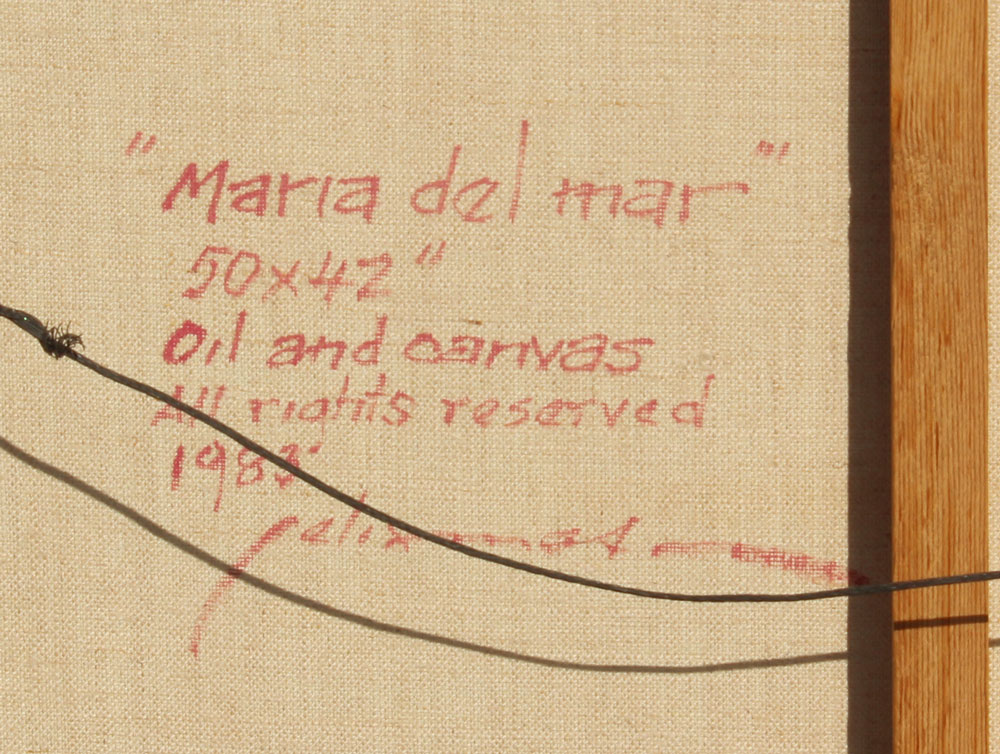 "Maria del mar"
50x42"
Oil and canvas
All rights reserved
1983
felix mas